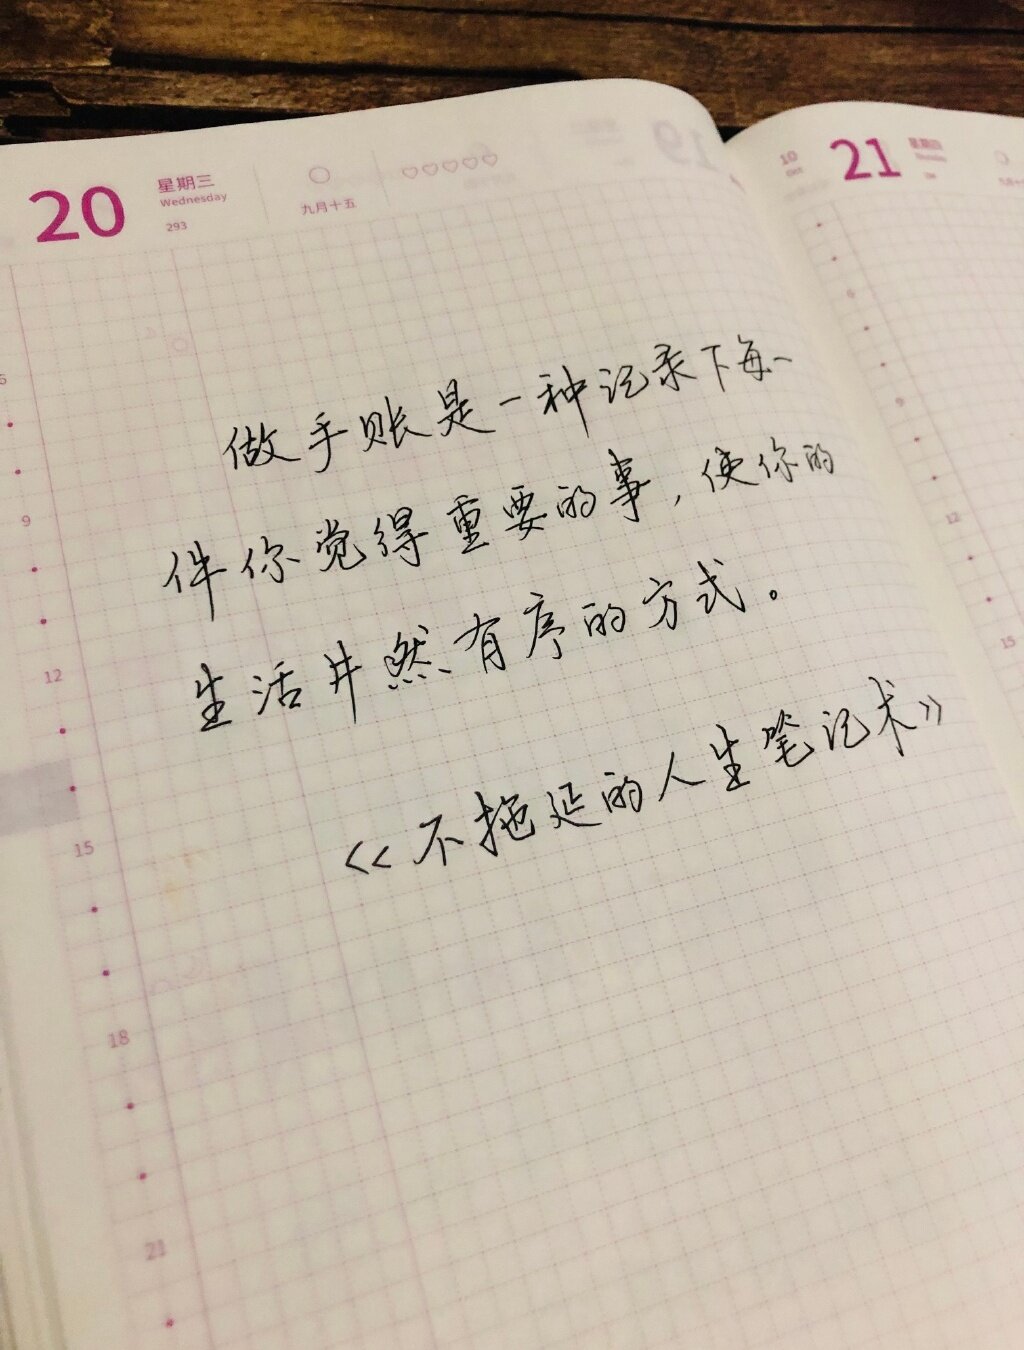 20 星期三 九月十五 ♡♡♡♡♡
Wednesday
293
10 21
9
12
15
18
21
12
15
做手账是一种记录下每一
件你觉得重要的事，使你的
生活井然有序的方式。
《不拖延的人生笔记术》